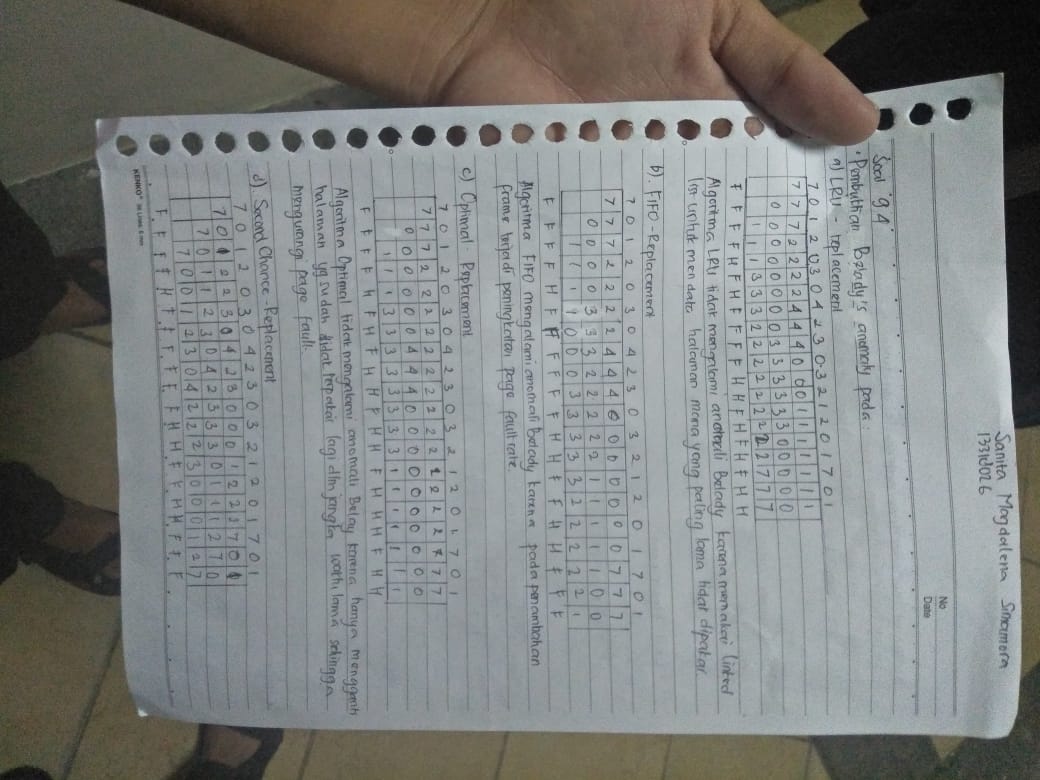 Sanita Magdalena Simamora
13318026
No
Date
Soal 9.4
• Pembuktian Belady's anomaly pada :
a) LRU - replacement
7 0 1 2 0 3 0 4 2 3 0 3 2 1 2 0 1 7 0 1
7 7 7 2 2 2 2 4 4 4 0 0 0 1 1 1 1 1 1 1
0 0 0 0 0 0 0 0 3 3 3 3 3 3 0 0 0 0 0
1 1 1 3 3 3 2 2 2 2 2 2 2 2 2 7 7 7
F F F F H F H F F F F H H F H F H F H H
Algoritma LRU tidak mengalami anomali Belady karena memakai linked
list untuk mendata halaman mana yang paling lama tidak dipakai.
b). FIFO - Replacement
7 0 1 2 0 3 0 4 2 3 0 3 2 1 2 0 1 7 0 1
7 7 7 2 2 2 2 4 4 4 0 0 0 0 0 0 0 7 7 7
0 0 0 0 3 3 3 2 2 2 2 2 1 1 1 1 1 0 0
1 1 1 1 0 0 0 3 3 3 3 3 2 2 2 2 2 1
F F F F H F F F F F F H H F F H H F F F
Algoritma FIFO mengalami anomali Belady karena pada penambahan
frame terjadi peningkatan page fault rate.
c) Optimal - Replacement
7 0 1 2 0 3 0 4 2 3 0 3 2 1 2 0 1 7 0 1
7 7 7 2 2 2 2 2 2 2 2 2 2 2 2 2 2 7 7 7
0 0 0 0 0 0 4 4 4 0 0 0 0 0 0 0 0 0 0
1 1 1 3 3 3 3 3 3 3 3 1 1 1 1 1 1 1
F F F F H F H F H H F H H F H H H F H H
Algoritma Optimal tidak mengalami anomali Belay karena hanya mengganti
halaman yg sudah tidak terpakai lagi dlm jangka waktu lama sehingga
mengurangi page fault.
d). Second Chance - Replacement
7 0 1 2 0 3 0 4 2 3 0 3 2 1 2 0 1 7 0 1
7 0 1 2 2 3 0 4 2 3 0 0 0 1 2 2 2 7 0 1
7 0 1 1 2 3 0 4 2 3 3 3 0 1 1 1 2 7 0
7 0 0 1 2 3 0 4 2 2 2 3 0 0 0 1 2 7
F F F F H F F F F F F H H F F H H F F F
KENKO® 36 Lines, 6 mm